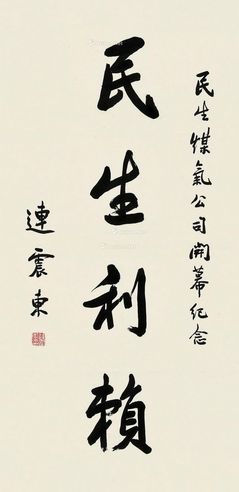 民生煤氣公司開幕紀念
民生利賴
連震東